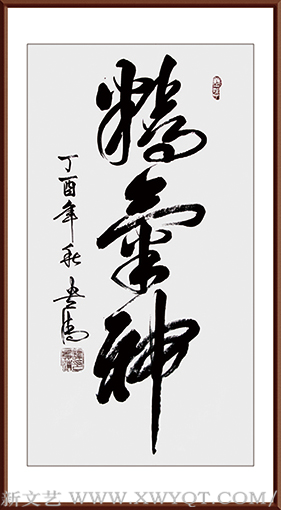 精氣神
丁酉年秋
新文艺 WWW.XWYQT.COM/